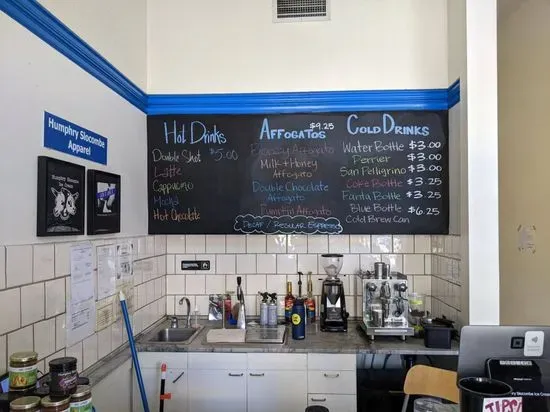 Humphry Slocombe
Apparel
Hot Drinks
Double Shot $5.00
Latte
Cappucino
Mocha
Hot Chocolate
Affogatos
$9.25
Affogato
Milk + Honey
Affogato
Double Chocolate
Affogato
Affogato
Decaf / Regular Espresso
Cold Drinks
Water Bottle $3.00
Perrier $3.00
San Pelligrino $3.00
Coke Bottle $3.25
Fanta Bottle $3.25
Blue Bottle $6.25
Cold Brew Can
TIPS